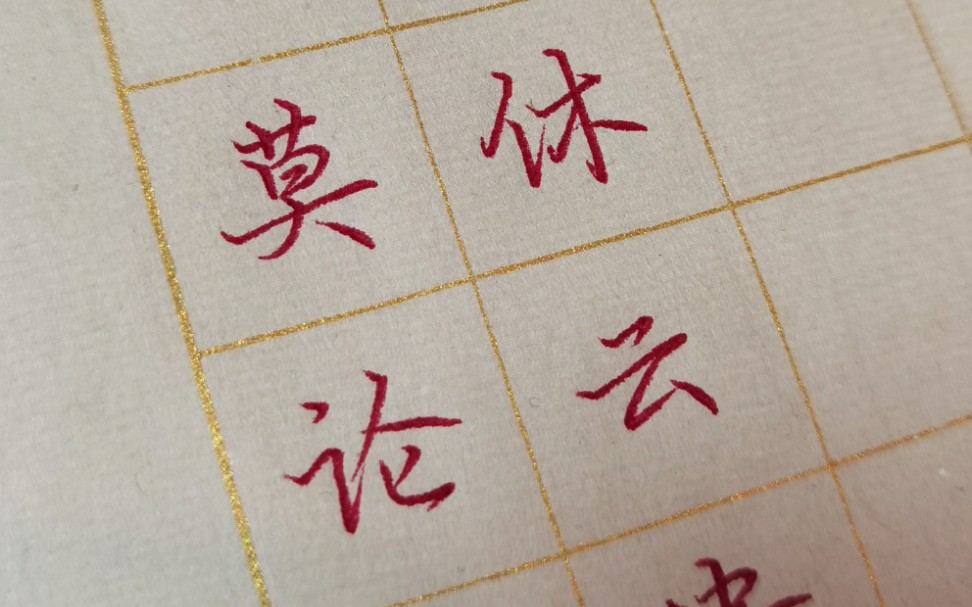 休云
莫论